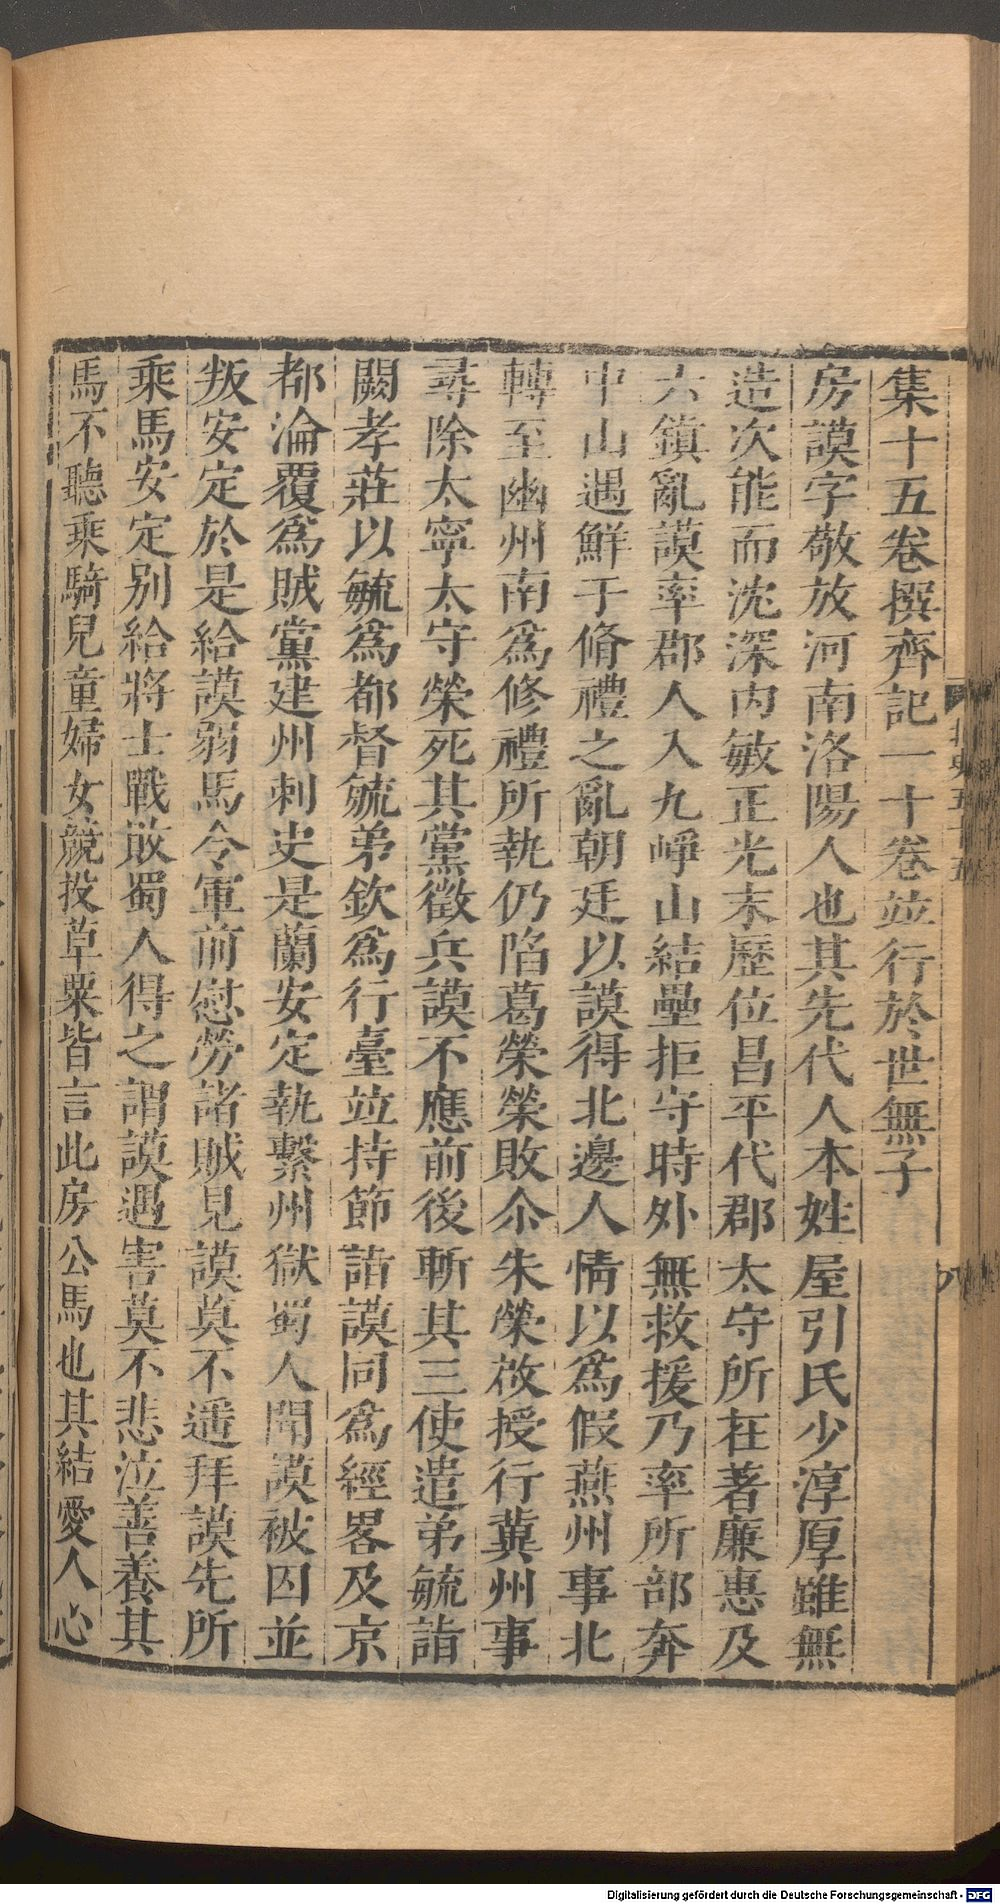 集十五卷撰齊記一十卷竝行於世無子
房謨字敬放河南洛陽人也其先代人本姓屋引氏少淳厚雖無
造次能而沈深內敏正光末歷位昌平代郡太守所在著廉惠及
六鎮亂謨率郡人入九崢山結壘拒守時外無救援乃率所部奔
中山遇鮮于脩禮之亂朝廷以謨得北邊人情以為假燕州事北
轉至幽州南為修禮所執仍陷葛榮榮敗尒朱榮啟授行冀州事
尋除太寧太守榮死其黨徵兵謨不應前後斬其三使遣弟毓詣
闕孝莊以毓為都督毓弟欽為行臺竝持節詣謨同為經畧及京
都淪覆為賊黨建州刺史是蘭安定執繫州獄蜀人聞謨被囚並
叛安定於是給謨弱馬令軍前慰勞諸賊見謨莫不遥拜謨先所
乘馬安定別給將士戰敗蜀人得之謂謨遇害莫不悲泣善養其
馬不聽乘騎兒童婦女競投草粟皆言此房公馬也其結愛人心
北史五十五
八
Digitalisierung gefördert durch die Deutsche Forschungsgemeinschaft - DFG